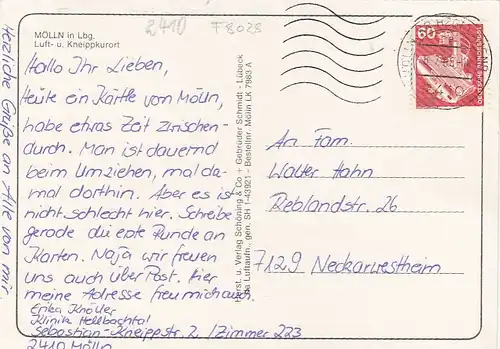 2410 F8028
MÖLLN in Lbg.
Luft- u. Kneippkurort
Hallo Ihr Lieben,
Heute ein Kärtle von Mölln,
habe etwas Zeit zwischen-
durch. Man ist dauernd
beim Umziehen, mal da-
mal dorthin. Aber es ist
nicht schlecht hier. Schreibe
gerade die erste Runde an
Karten. Naja wir freuen
uns auch über Post. Hier
meine Adresse freu mich auch.
Erika Knöller
Klinik Hellbachtal
Sebastian-Kneippstr. 2, / Zimmer 223
2410 Mölln
Herzliche Grüße an Alle von mir.
Verlag Schöning & Co + Gebrüder Schmidt - Lübeck
Luftaufn., gen. SH 1-43921 - Bestellnr. Mölln LK 7983 A
60
DEUTSCHE BUNDESPOST
An Fam.
Walter Hahn
Reblandstr. 26
7129 Neckarwestheim